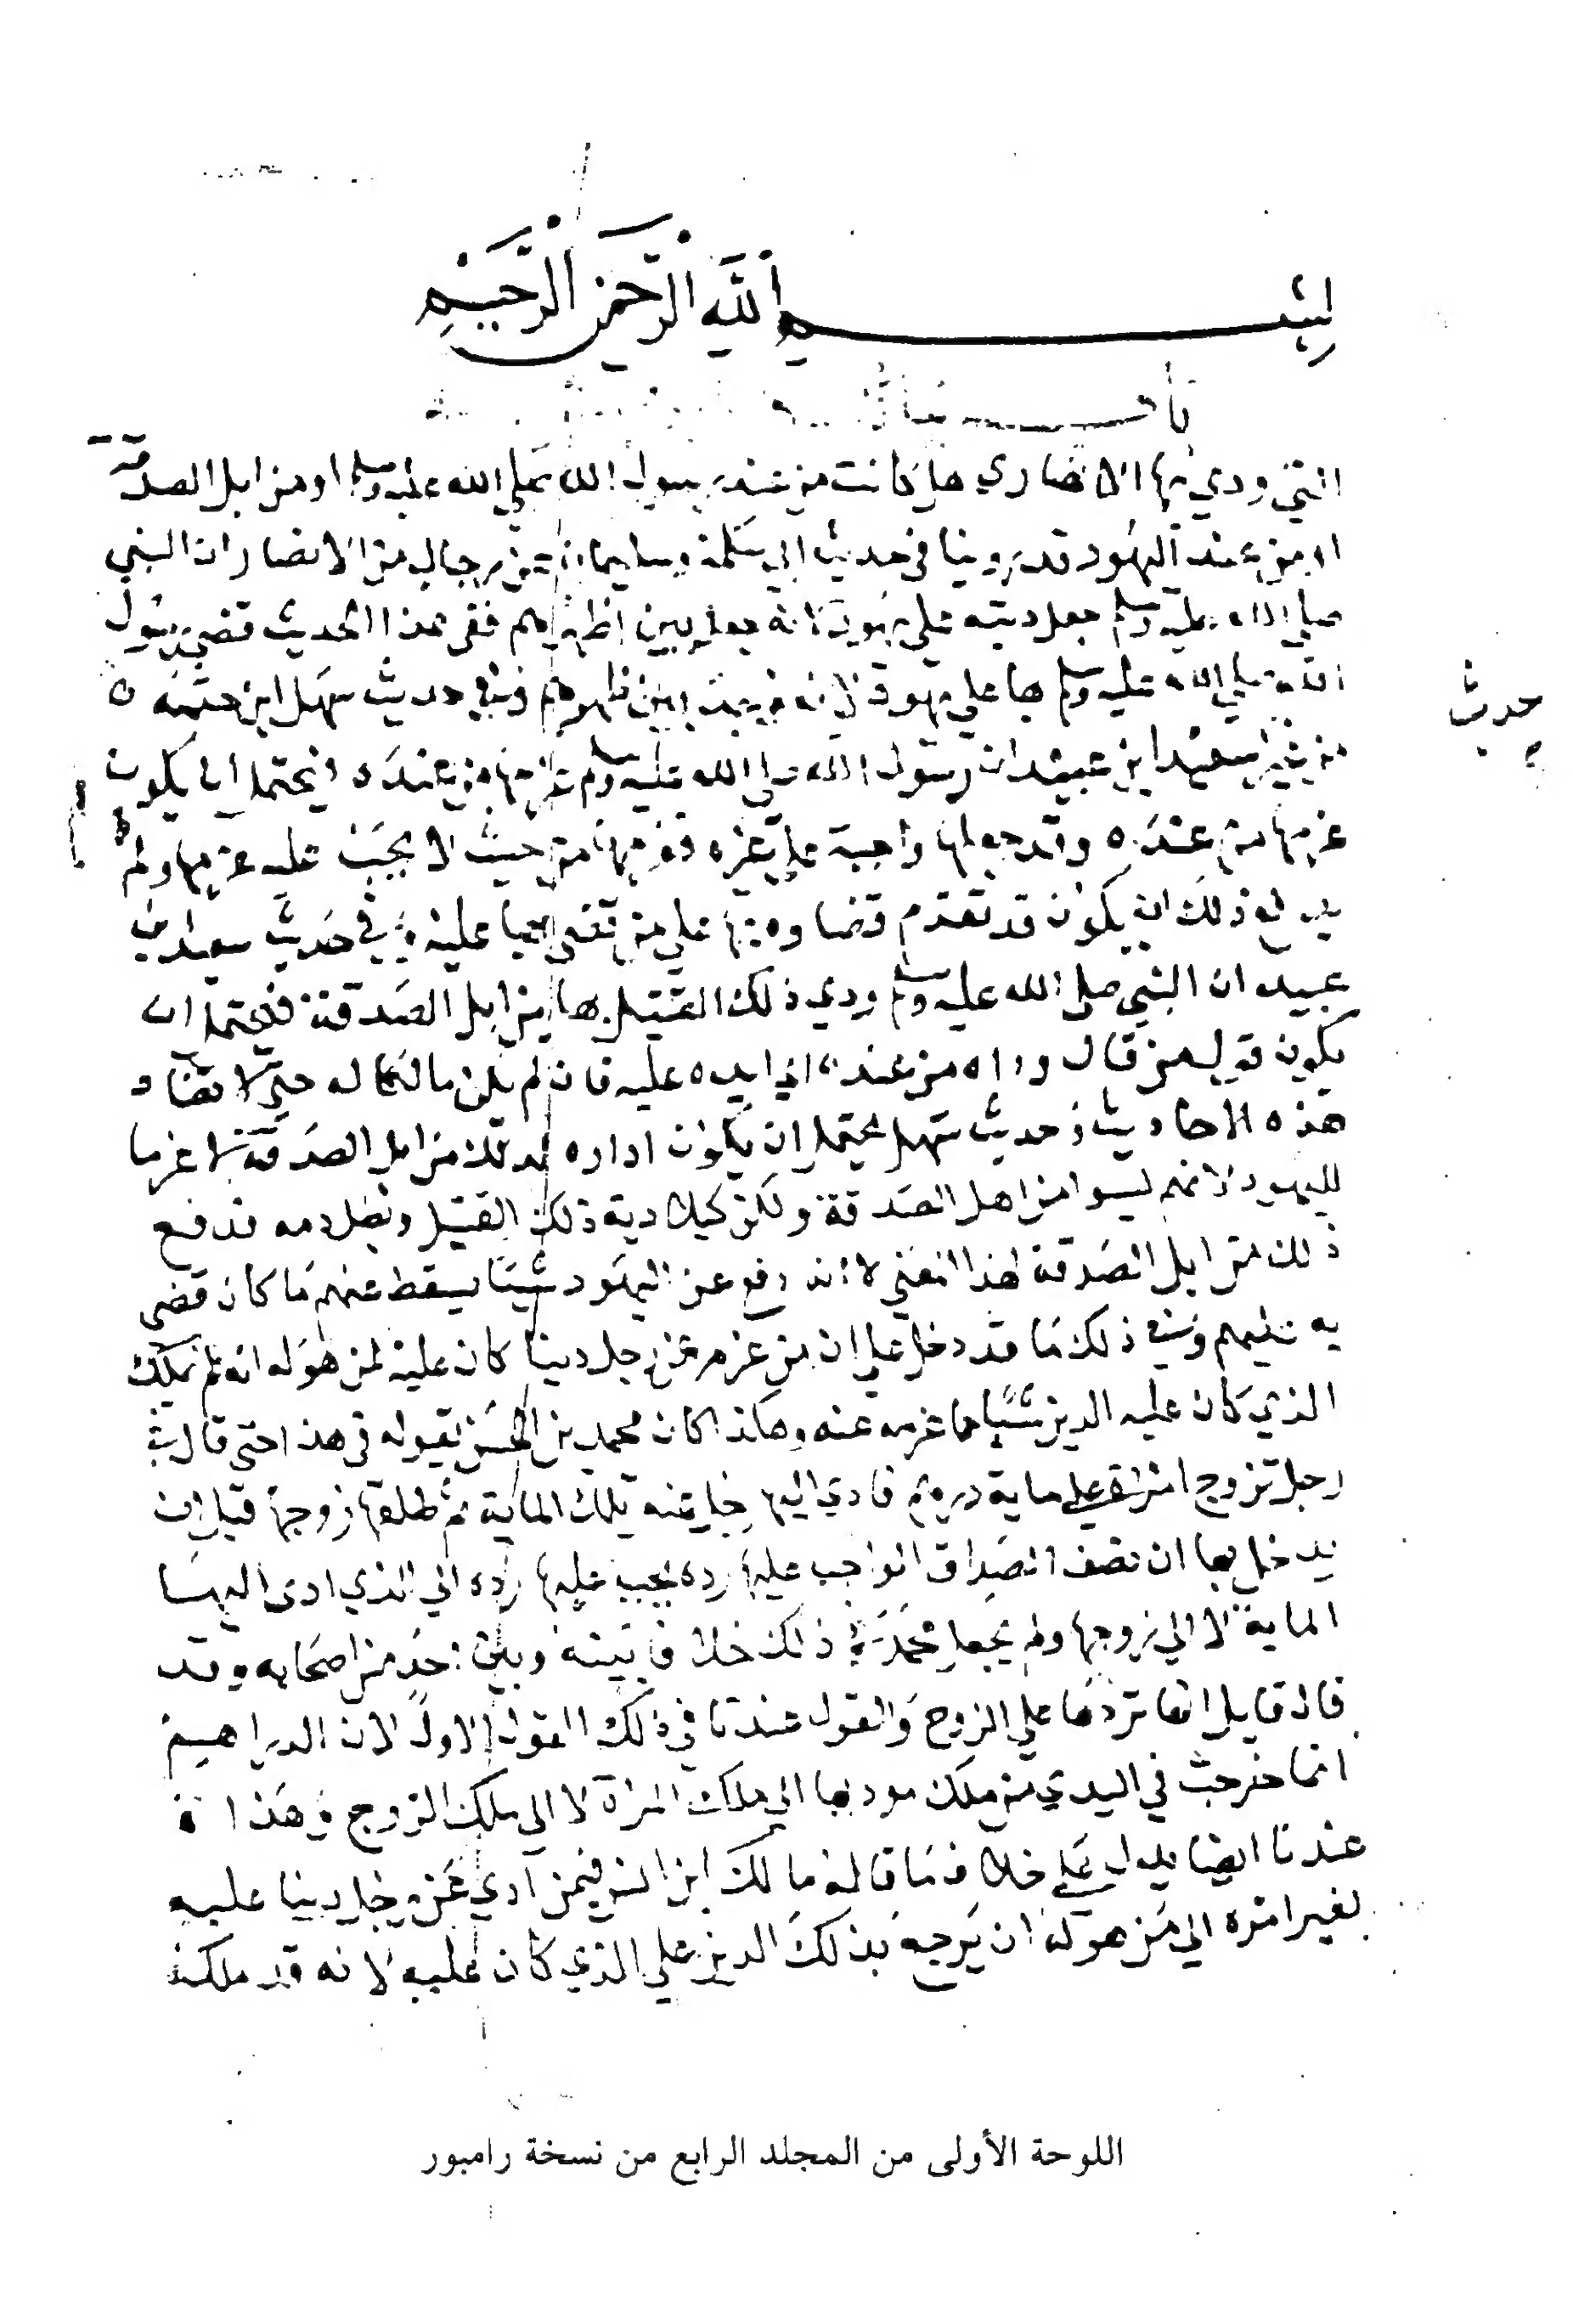 بسم الله الرحمن الرحيم
باب
التي ودي بها الانصاري هل كانت من عند رسول الله صلى الله عليه وسلم او من ابل الصدقة
او من عند اليهود قد روينا في حديث ابي سلمة وسليمان عن رجال من الانصار ان النبي
صلى الله عليه وسلم جعل ديته على يهود لانه بين اظهرهم ففي هذا الحديث قضى رسول
الله صلى الله عليه وسلم بها على يهود لانه بين ظهورهم وفي حديث سهل ابن حثمة ه
حديث
سعيد ابن عبيد ان رسول الله صلى الله عليه وسلم غرمها من عنده فيحتمل ان يكون
غرمها من عنده وقد جعلها واجبة على غيره فغرمها من حيث لا يجب عليه غرمها ولم
يدفع ذلك ان يكون قد تقدم قضاوه بها على من قضى بها عليه وفي حديث سعيد بن
عبيد ان النبي صلى الله عليه وسلم ودي ذلك القتيل بها من ابل الصدقة فيحتمل ان
يكون قول من قال وداه من عنده اي ايده عليه فان لم يكن مالكا له حتى لا تضاد
هذه الاحاديث وحديث سهل يحتمل ان يكون اداره لذلك من ابل الصدقة لا غرما
لليهود لانهم ليسوا من اهل الصدقة ولكن كيلا دية ذلك القتيل وبطل دمه فدفع
ذلك من ابل الصدقة لهذا المعنى لا انه دفع عن اليهود شيئا يسقط عنهم ما كان قضى
به عليهم وفي ذلك ما قد دخل على ان من غرم عن رجل دينا كان عليه لمن هو له انه لم يملك
الذي كان عليه الدين شيئا مما غرمه عنه وهكذا كان محمد بن الحسن يقوله في هذا حتى قال في
رجل تزوج امراة على ماية درهم فادى اليها رجل عنه تلك الماية ثم طلقها زوجها قبل ان
يدخل بها ان نصف الصداق الواجب عليها رده يجب عليها رده الى الذي ادى اليها
الماية لا الى زوجها ولم يجعل محمد في ذلك خلافا بينه وبين احد من اصحابه وقد
قال قايل انها تردها على الزوج والقول عندنا في ذلك القول الاول لان الدراهم
انما خرجت في البدي من ملك موديها الى ملك المراة لا الى ملك الزوج وهذا
عندنا ايضا يدل على خلاف ما قاله مالك ابن انس فيمن ادى عن رجل دينا عليه
بغير امره الى من هو له ان يرجع بذلك الدين على الذي كان عليه لانه قد ملكه
اللوحة الأولى من المجلد الرابع من نسخة رامبور